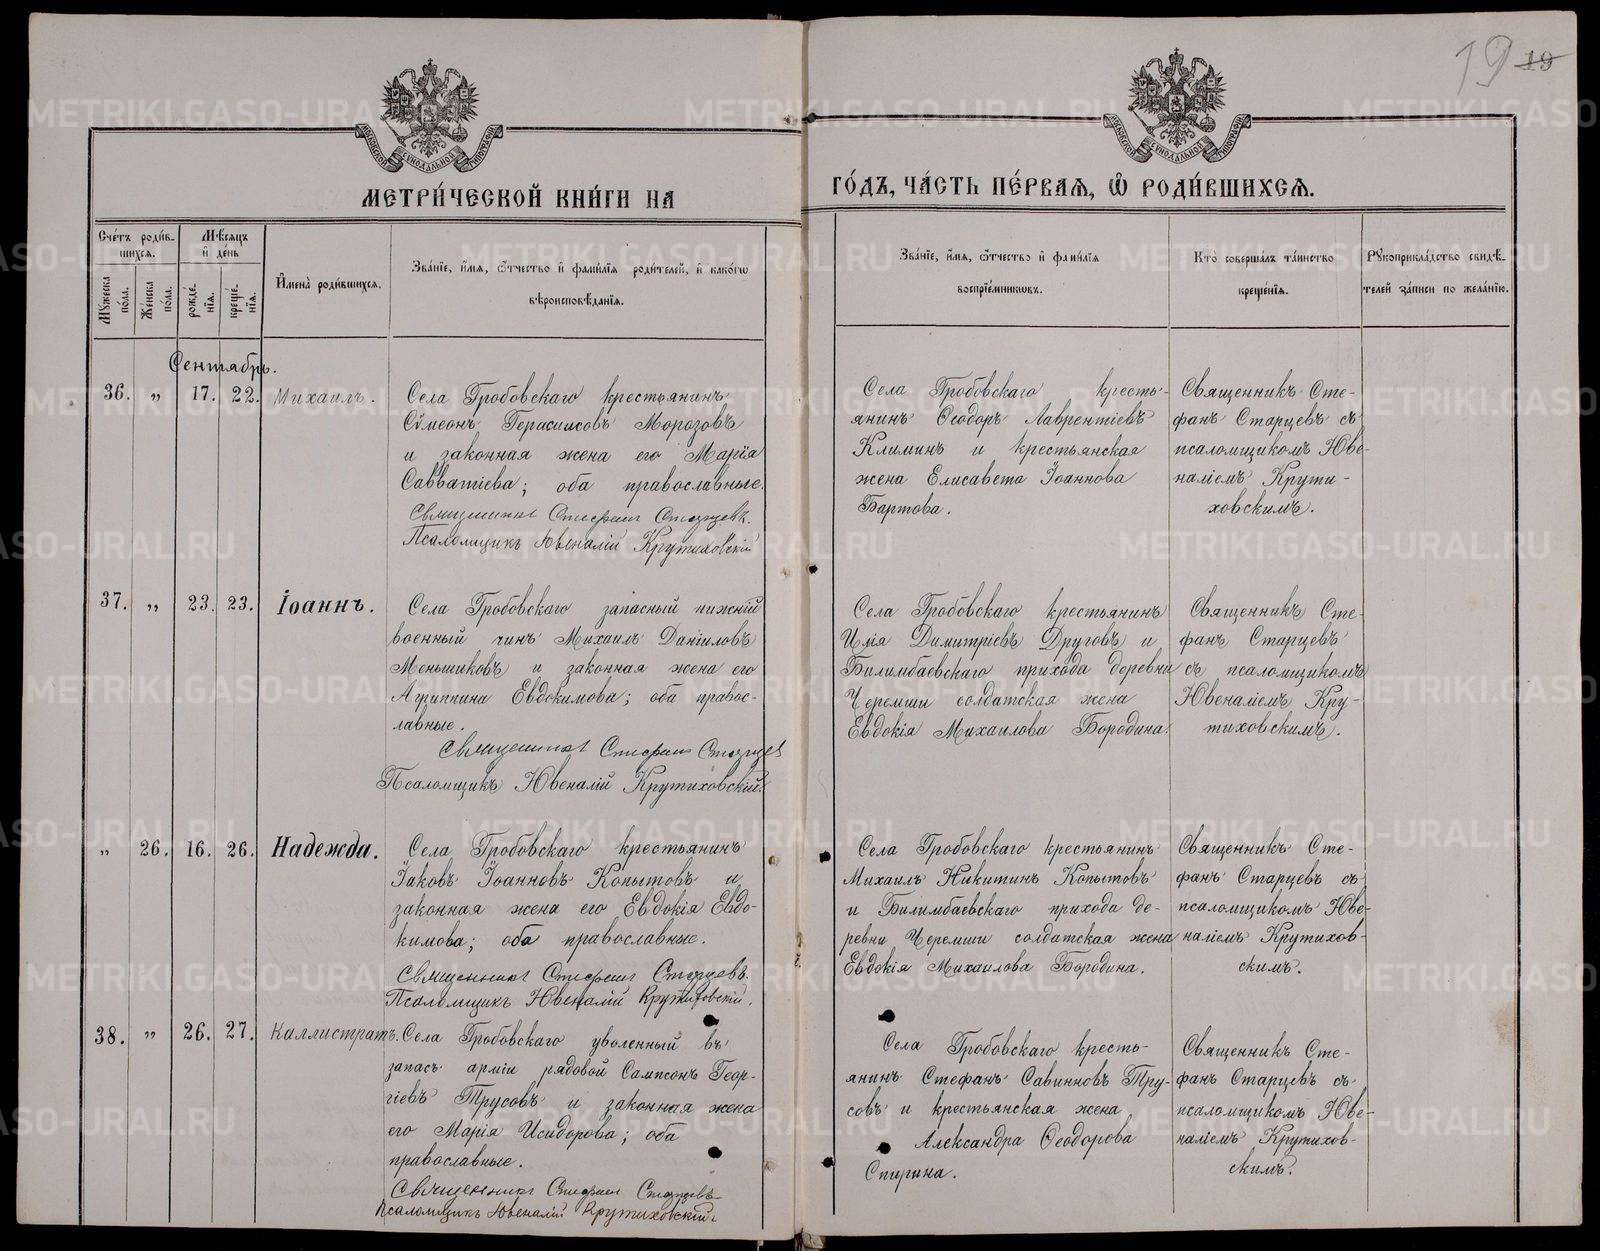 19 19
МЕТРИ́ЧЕСКОЙ КНИ́ГИ НА
ГО́ДЪ, ЧА́СТЬ ПЕ́РВАЯ, Ѿ РОДИ́ВШИХСЯ.
Сче́тъ роди́в-
шихся.
Мѣ́сяцъ
и҆ де́нь
Му́жеска
по́ла.
Же́нска
по́ла.
рожде́-
нїя.
креще́-
нїя.
И҆мена̀ роди́вшихся.
Зва́нїе, и҆́мя, ѻ҆́тчество и҆ фами́лїя роди́телей, и҆ како́гѡ
вѣроисповѣ́данїя.
Зва́нїе, и҆́мя, ѻ҆́тчество и҆ фами́лїя
воспрїе́мниковъ.
Кто̀ соверша́лъ та́инство
креще́нїя.
Рукоприкла́дство свидѣ́-
телей за́писи по жела́нїю.
Сентябрь.
36. „ 17. 22. Михаилъ.
Села Гробовскаго крестьянинъ
Сѵмеонъ Герасимовъ Морозовъ
и законная жена его Марія
Савватіева; оба православные.
Священникъ Стефанъ Старцевъ.
Псаломщикъ Ювеналій Крутиховскій
Села Гробовскаго кресть-
янинъ Ѳеодоръ Лаврентіевъ
Климинъ и крестьянская
жена Елисавета Іоаннова
Бартова.
Священникъ Сте-
фанъ Старцевъ съ
псаломщикомъ Юве-
наліемъ Крути-
ховскимъ.
37. „ 23. 23. Іоаннъ.
Села Гробовскаго запасный нижній
военный чинъ Михаилъ Даніиловъ
Меньшиковъ и законная жена его
Агриппина Евдокимова; оба право-
славные.
Священникъ Стефанъ Старцев
Псаломщикъ Ювеналій Крутиховскій.
Села Гробовскаго крестьянинъ
Илія Димитріевъ Друговъ и
Билимбаевскаго прихода деревни
Черемши солдатская жена
Евдокія Михаилова Бородина.
Священникъ Сте-
фанъ Старцевъ
съ псаломщикомъ
Ювеналіемъ Кру-
тиховскимъ.
„ 26. 16. 26. Надежда.
Села Гробовскаго крестьянинъ
Іаковъ Іоанновъ Копытовъ и
законная жена его Евдокія Евдо-
кимова; оба православные.
Священникъ Стефанъ Старцевъ.
Псаломщикъ Ювеналій Крутиховскій.
Села Гробовскаго крестьянинъ
Михаилъ Никитинъ Копытовъ
и Билимбаевскаго прихода де-
ревни Черемши солдатская жена
Евдокія Михаилова Бородина.
Священникъ Сте-
фанъ Старцевъ съ
псаломщикомъ Юве-
наліемъ Крутихов-
скимъ.
38. „ 26. 27. Каллистратъ.
Села Гробовскаго уволенный въ
запасъ арміи рядовой Сампсонъ Геор-
гіевъ Трусовъ и законная жена
его Марія Исидорова; оба
православные.
Священникъ Стефанъ Старцевъ
Псаломщикъ Ювеналій Крутиховскій.
Села Гробовскаго кресть-
янинъ Стефанъ Савинновъ Тру-
совъ и крестьянская жена
Александра Ѳеодорова
Спирина.
Священникъ Сте-
фанъ Старцевъ съ
псаломщикомъ Юве-
наліемъ Крутихов-
скимъ.